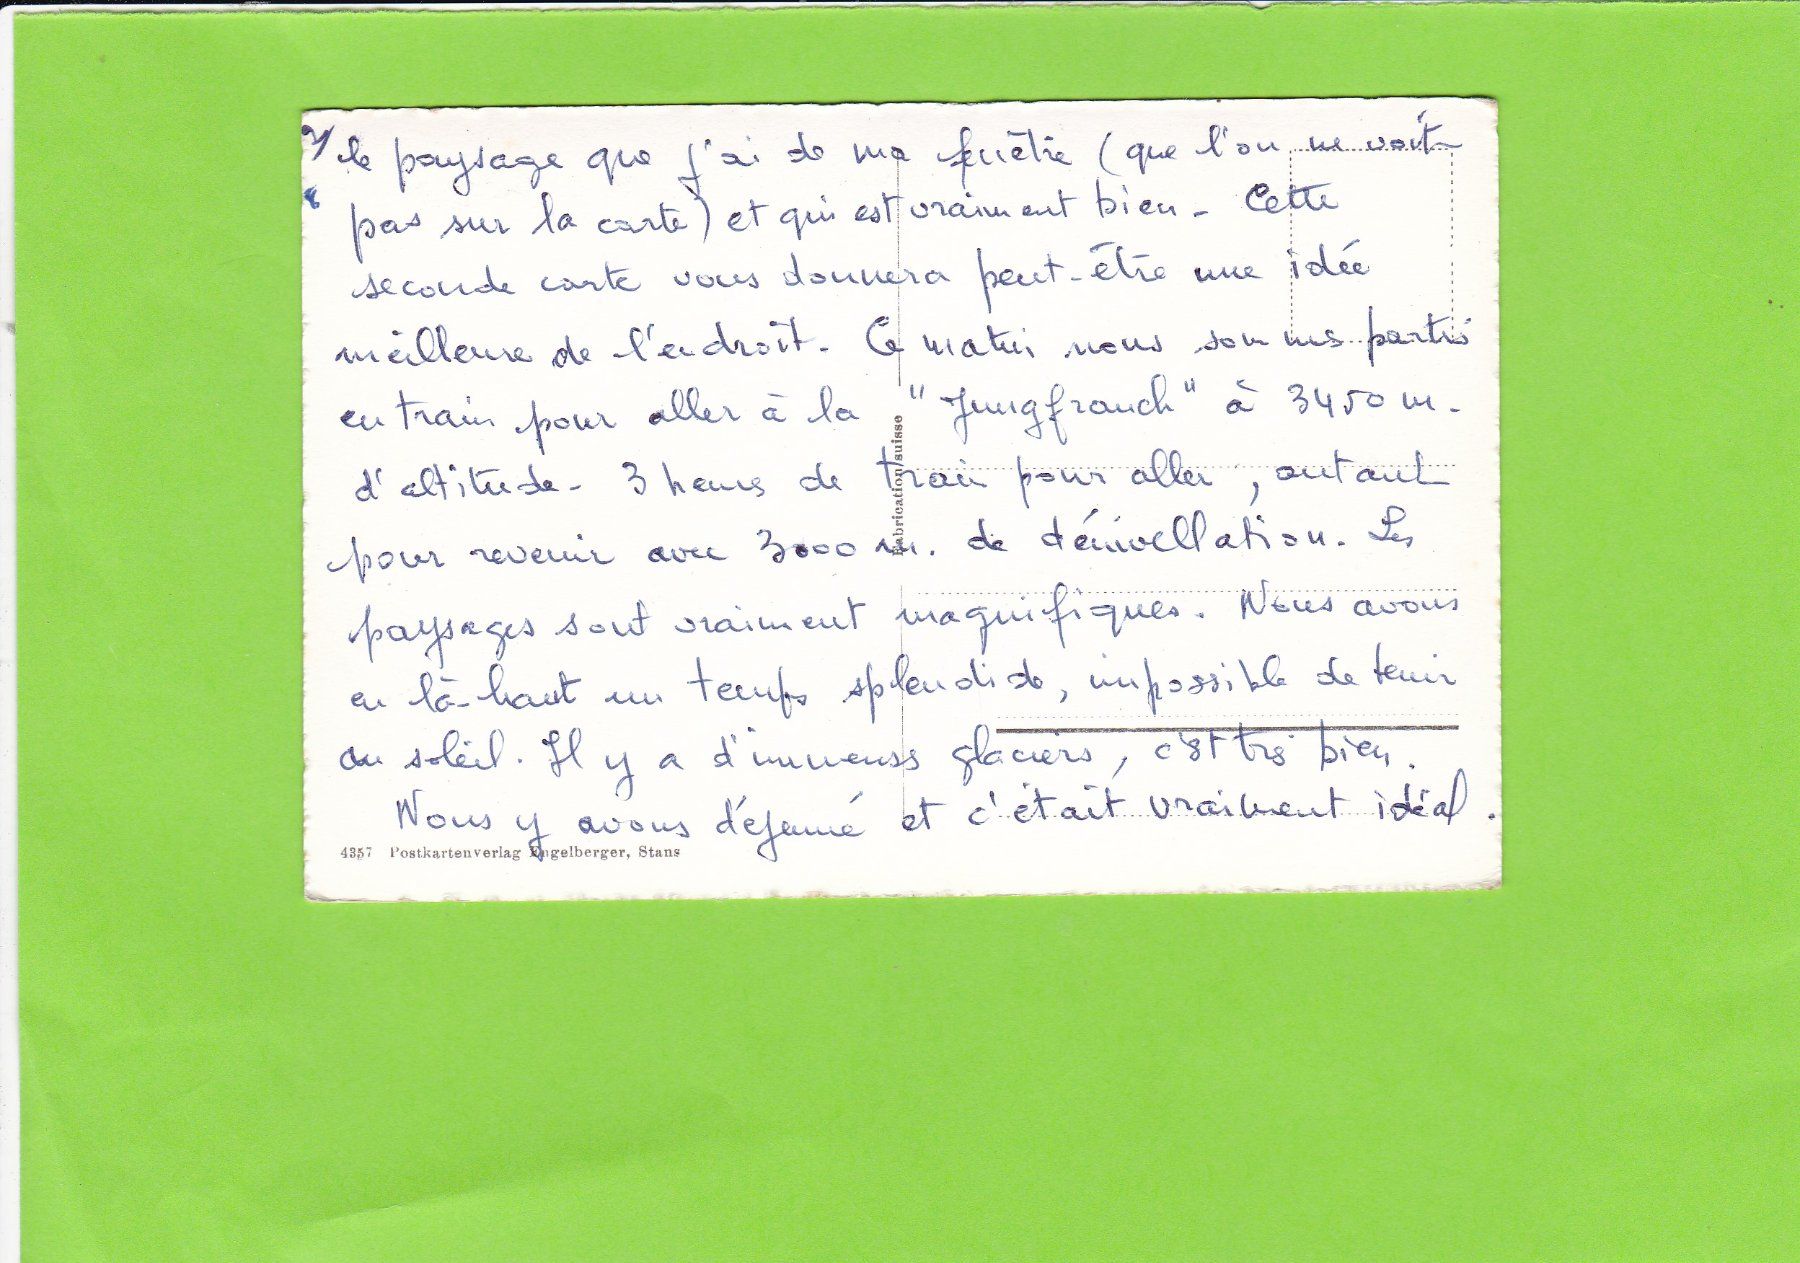 2/ le paysage que j'ai de ma fenêtre (que l'on ne voit
pas sur la carte) et qui est vraiment bien - Cette
seconde carte vous donnera peut-être une idée
meilleure de l'endroit. Ce matin nous sommes partis
en train pour aller à la "Jungfrauch" à 3450 m.
d'altitude - 3 heures de train pour aller, autant
pour revenir avec 3000 m. de dénivellation. Les
paysages sont vraiment magnifiques. Nous avons
eu là-haut un temps splendide, impossible de tenir
au soleil. Il y a d'immenses glaciers, c'est très bien.
Nous y avons déjeuné et c'était vraiment idéal.
4357 Postkartenverlag Engelberger, Stans
Fabrication suisse